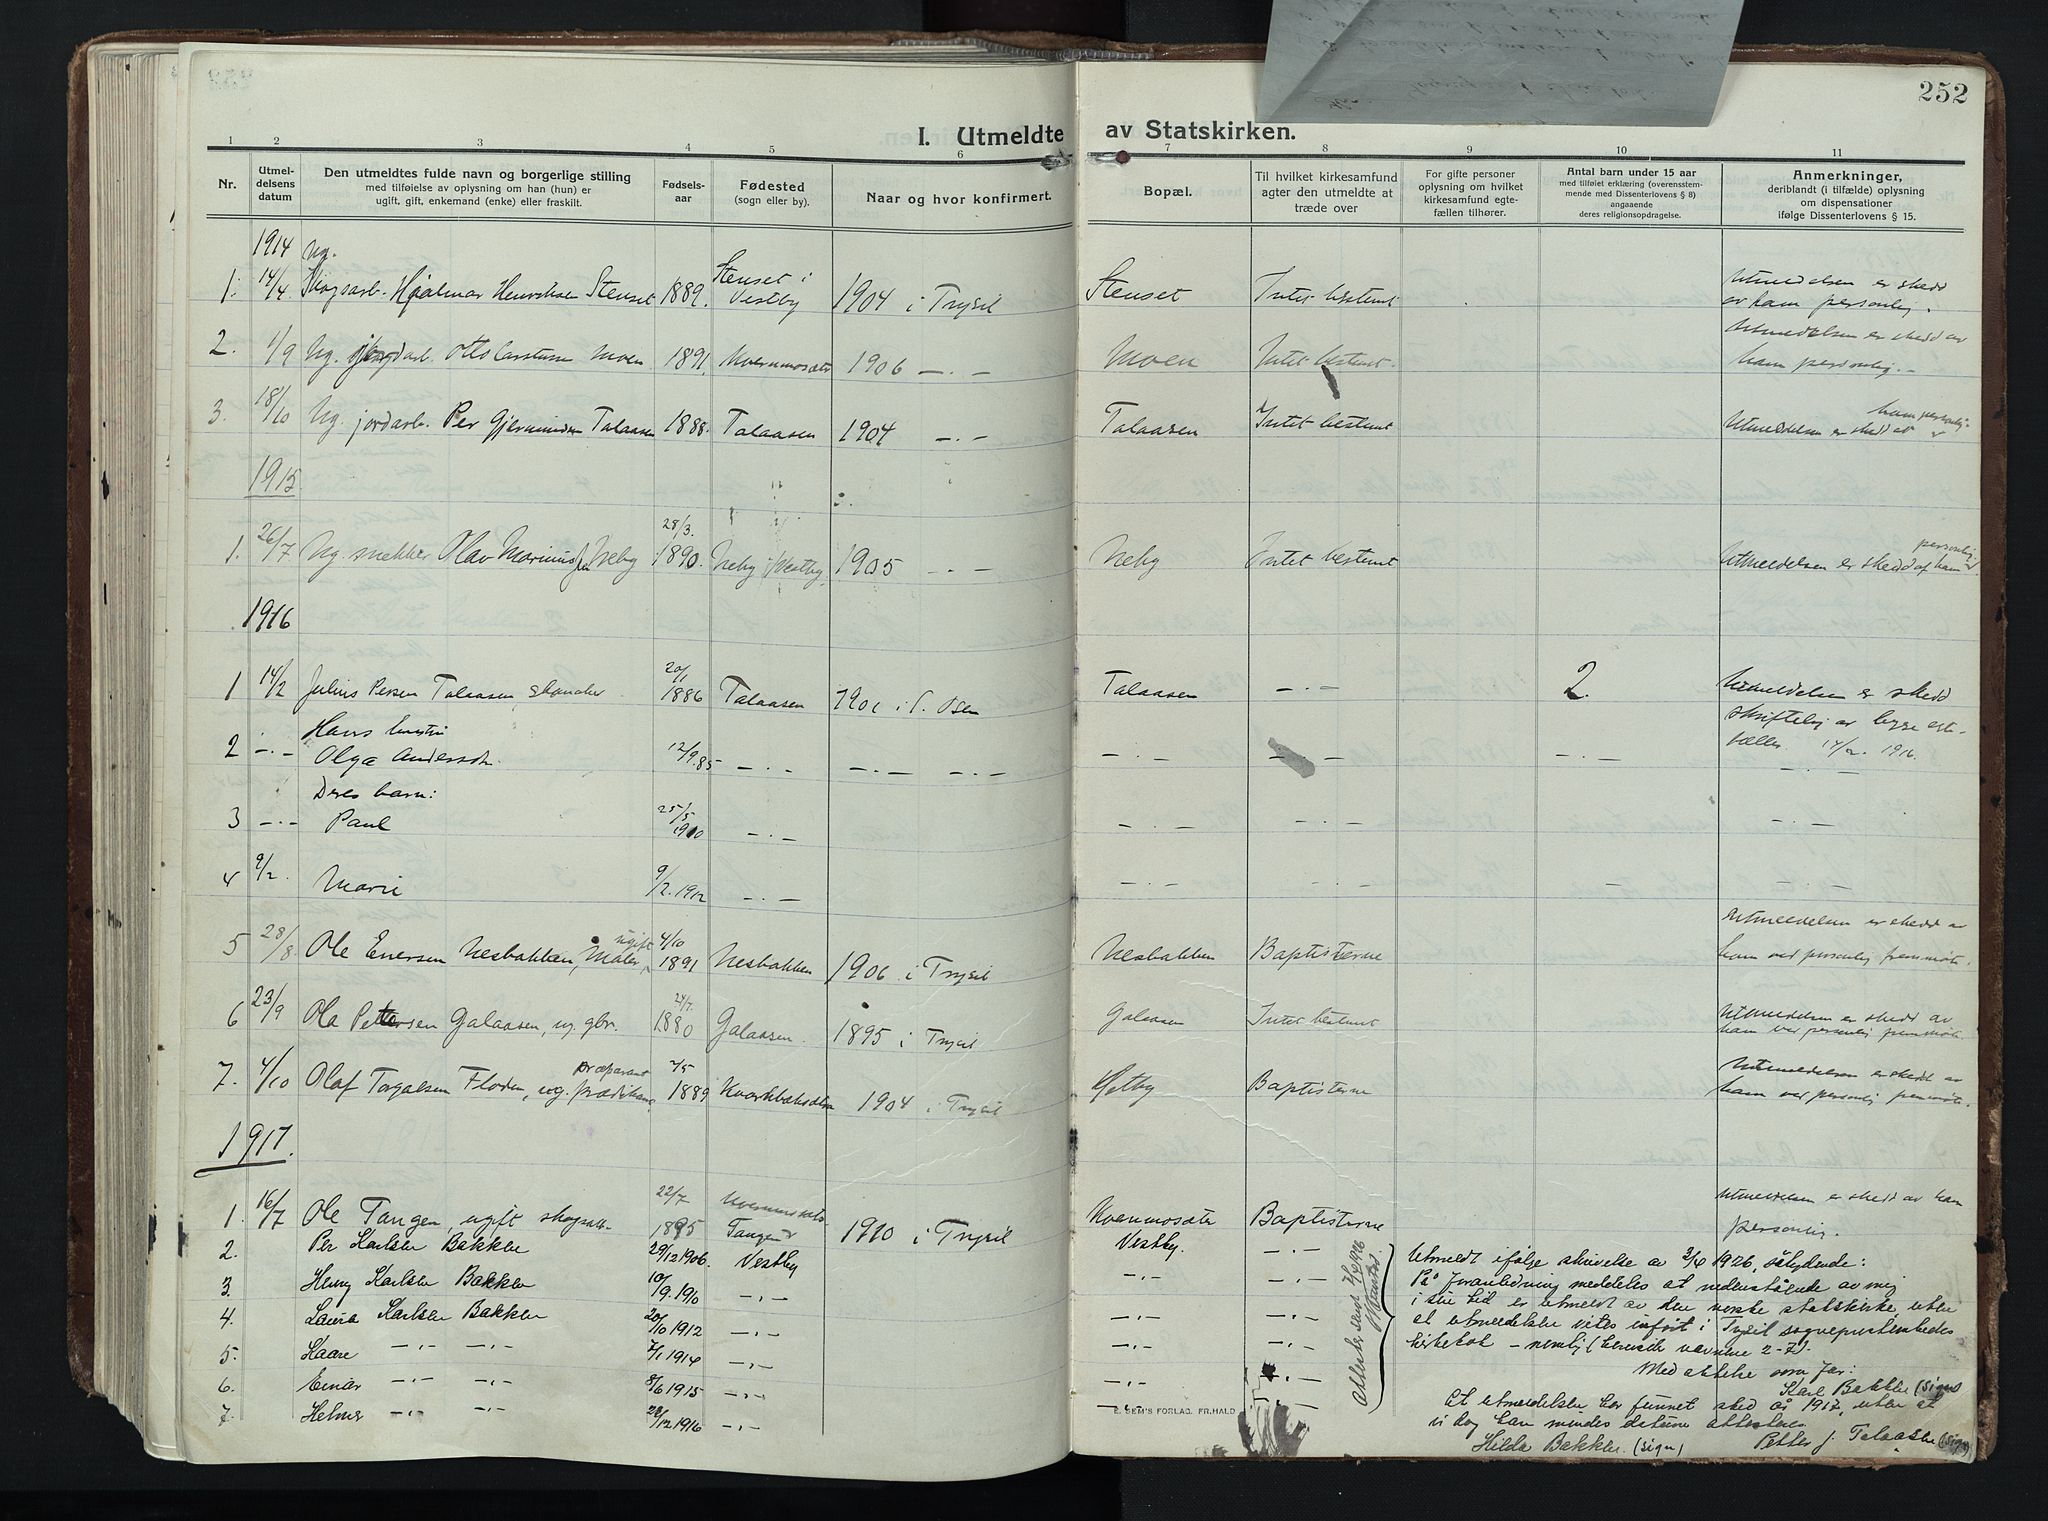 252
I. Utmeldte av Statskirken.
1 2 3 4 5 6 7 8 9 10 11
Nr.
Utmel-
delsens
datum
Den utmeldtes fulde navn og borgerlige stilling
med tilføielse av oplysning om han (hun) er
ugift, gift, enkemand (enke) eller fraskilt.
Fødsels-
aar
Fødested
(sogn eller by).
Naar og hvor konfirmert.
Bopæl.
Til hvilket kirkesamfund
agter den utmeldte at
træde over
For gifte personer
oplysning om hvilket
kirkesamfund egte-
fællen tilhører.
Antal barn under 15 aar
med tilføiet erklæring (overensstem-
mende med Dissenterlovens § 8)
angaaende
deres religionsopdragelse.
Anmerkninger,
deriblandt (i tilfælde) oplysning
om dispensationer
ifølge Dissenterlovens § 15.
1914
1. 14/4 Ug. Skogsarb. Hjalmar Henriksen Stenset 1889. Stenset i Vestby 1904 i Trysil Stenset Intet bestemt Utmeldelsen er skedd av ham personlig.
2. 1/9 Ug. jordarb. Otto Carstensen Moen 1891. 1906 — . — Moen Intet bestemt. Utmeldelsen er skedd av ham personlig. —
3. 18/10 Ug. jordarb. Per Gjermundsen Talaasen 1888. Talaasen 1904 — . — Talaasen Intet bestemt Utmeldelsen er skedd af ham personlig.
1915
1. 26/7 Ug. snekker Olav Marinius Neby 28/3. 1890. Neby i Vestby 1905 — . — Neby Intet bestemt Utmeldelsen er skedd af ham personlig.
1916
1 14/2 Julius Persen Talaasen, 20/1 1886 Talaasen i S. Osen Talaasen — . — 2. Utmeldelsen er skedd
skriftelig av begge egte-
fæller 14/2. 1916.
2 — . — Hans hustru
Olga Andersdtr. 12/9.85 — . — — . — — . — — . — — . — — . — — . —
Deres barn:
3 — . — Paul 25/5 1910 — . — — . — — . — — . —
4 9/2. Marie 9/2.1912 — . — — . — — . — — — . —
5 28/8 Ole Enersen Nesbakken, Maler, ugift 4/10 1891 Nesbakken 1906 i Trysil Nesbakken Baptisterne Utmeldelsen er skedd av
ham ved personlig fremmøte.
6 23/9 Ola Pettersen Galaasen, ug. gbr. 24/7. 1880 Galaasen. 1895 i Trysil Galaasen Intet bestemt Utmeldelsen er skedd av
ham ved personlig fremmøte.
7. 4/10 Olaf Torgalsen Floden, ug. prædikant 2/5 1889 1904 i Trysil Baptisterne Utmeldelsen er skedd av
ham ved personlig fremmøte.
1917.
1. 16/7 Ole Tangen, ugift skogsarb. 22/7 1895 Tangen 1910 i Trysil Baptisterne Utmeldelsen er skedd av ham
personlig.
2. Per Karlsen Bakken 29/12 1906. Vestby Vestby. — . —
3. Henry Karlsen Bakken 10/9. 1910 — . — — . — — . —
4. Laura Karlsen Bakken 20/10 1912 — . — — . — — . —
5. Kaare — . — — . — 7/1 1914 — . — — . —
6. Einar — . — — . — 8/6 1915 — . — — . —
7. Helmer — . — — . — 28/12 1916 — . — — . —
Utmeldt ifølge skrivelse av 3/4 1926, sålydende:
På foranledning meddeles at nedenstående av mig
i sin tid er utmeldt av den norske statskirke, uten
at utmeldelsen vites infört i Trysil sogneprestembedes
kirkebok — nemlig (herunder nævnene 2-7).
Med aktelse som far:
Karl Bakken (sign)
At utmeldelse har funnet sted år 1917, uten at
vi dog kan mindes datum attesteres
Hilda Bakken. (sign) Petter J. Talaasen (sign)
E. SEM'S FORLAG, FR.HALD